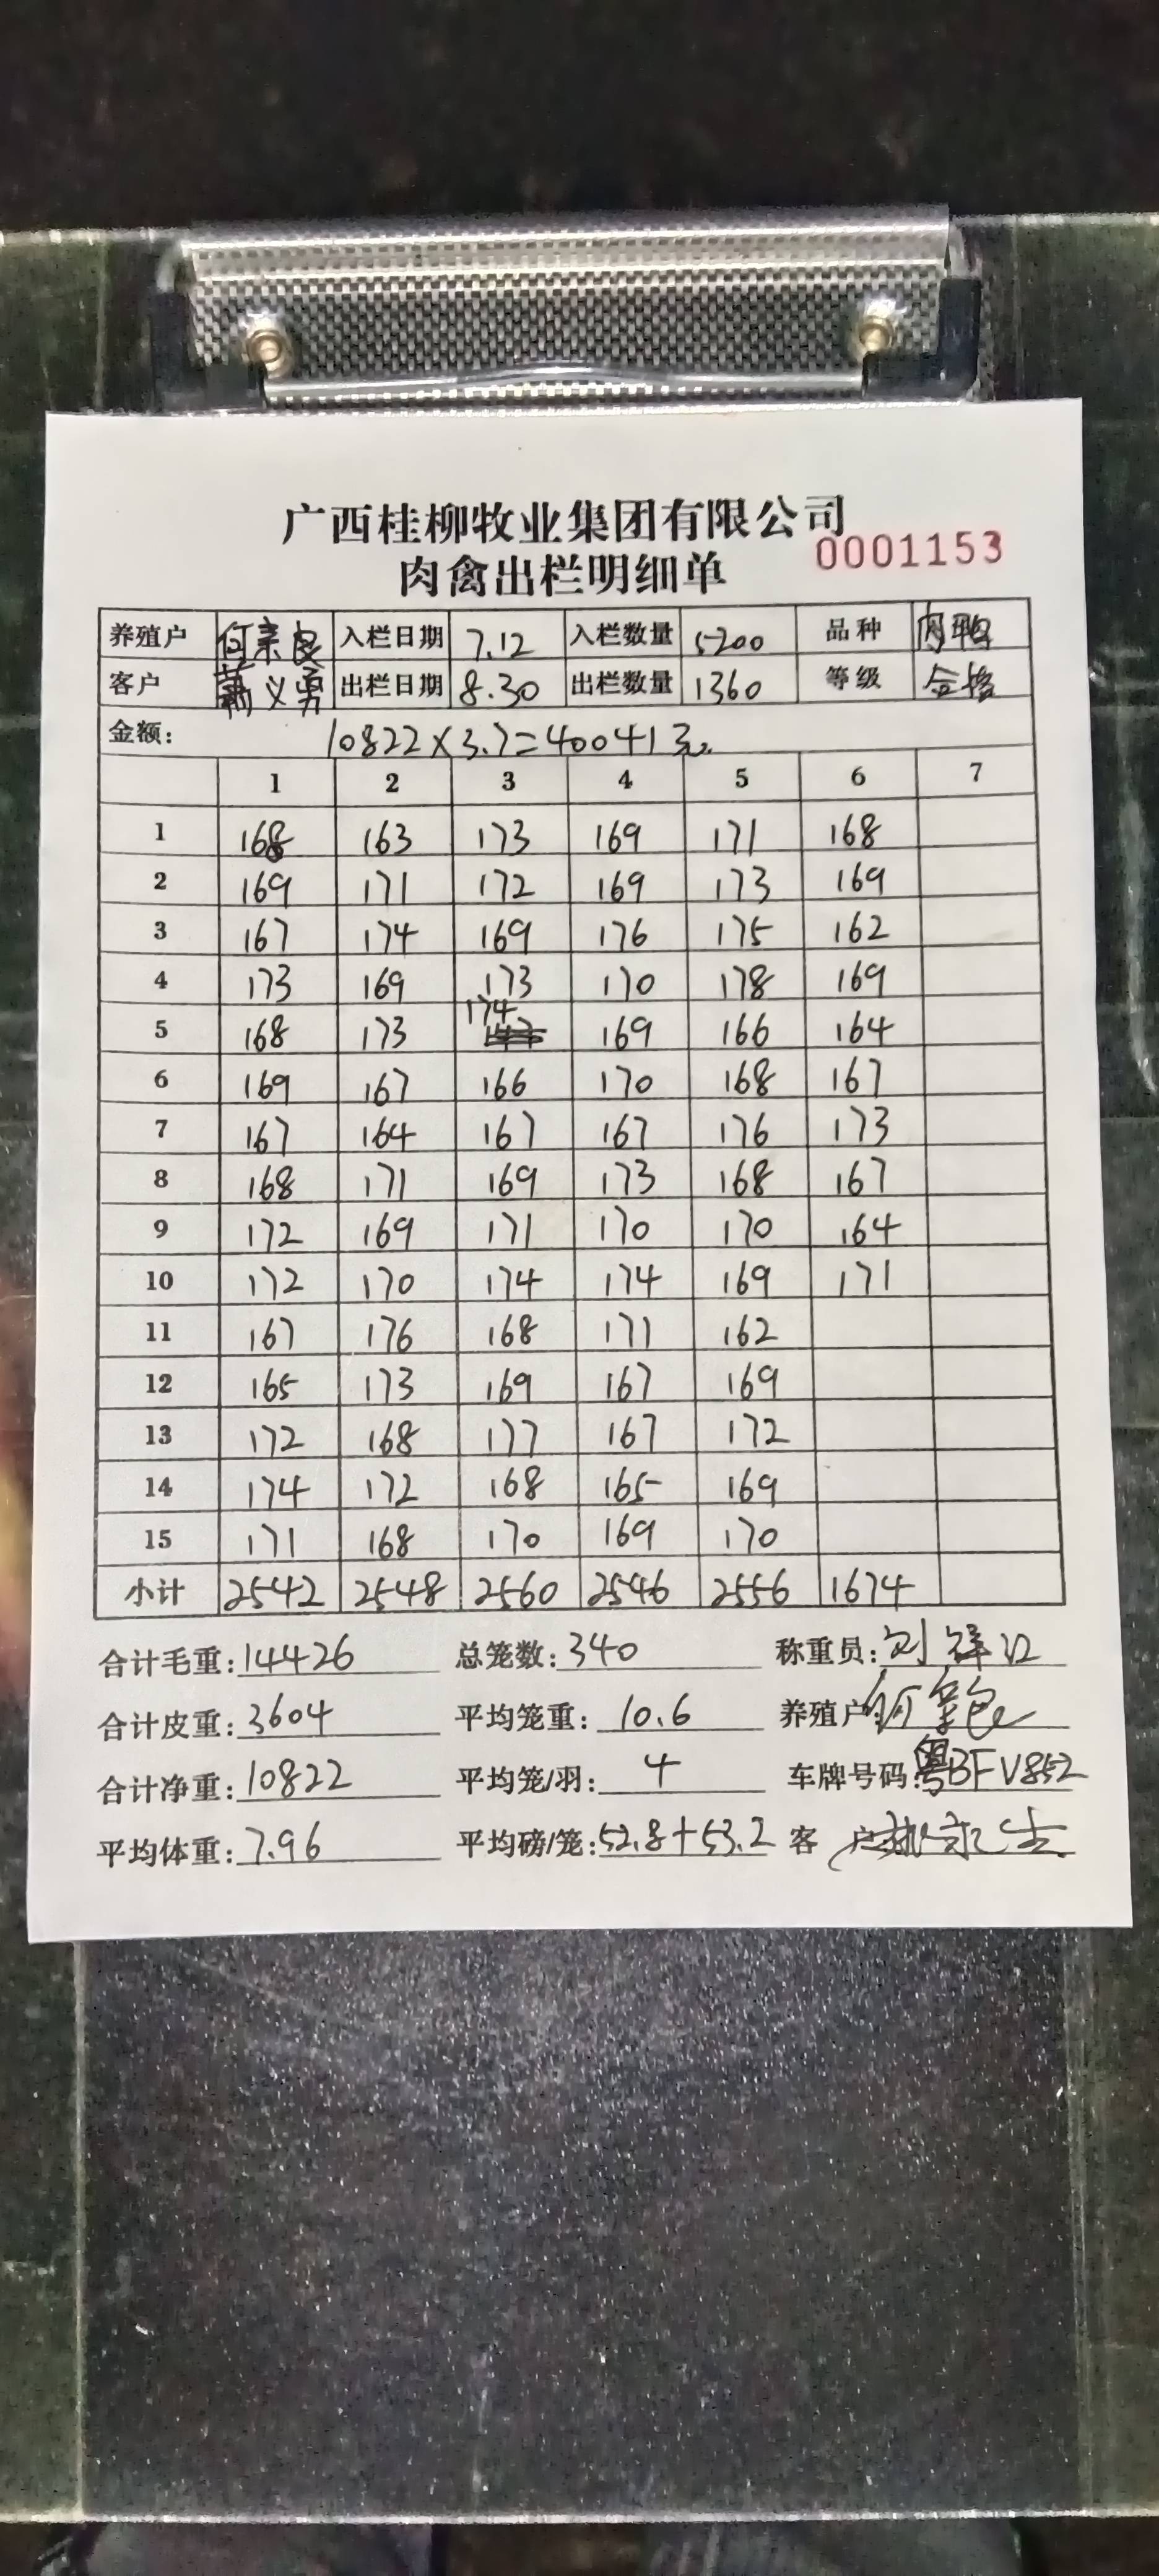 广西桂柳牧业集团有限公司
肉禽出栏明细单 0001153
养殖户 何 良 入栏日期 7.12 入栏数量 5200 品种 肉鸭
客户 萧义勇 出栏日期 8.30 出栏数量 1360 等级 合格
金额: 10822×3.7=40041元
1 2 3 4 5 6 7
1 168 163 173 169 171 168
2 169 171 172 169 173 169
3 167 174 169 176 175 162
4 173 169 173 170 178 169
5 168 173 174 169 166 164
6 169 167 166 170 168 167
7 167 164 167 167 176 173
8 168 171 169 173 168 167
9 172 169 171 170 170 164
10 172 170 174 174 169 171
11 167 176 168 171 162
12 165 173 169 167 169
13 172 168 177 167 172
14 174 172 168 165 169
15 171 168 170 169 170
小计 2542 2548 2560 2546 2556 1674
合计毛重:14426 总笼数:340 称重员:刘
合计皮重:3604 平均笼重:10.6 养殖户:何
合计净重:10822 平均笼/羽:4 车牌号码:粤BFV852
平均体重:7.96 平均磅/笼:52.8+53.2 客户